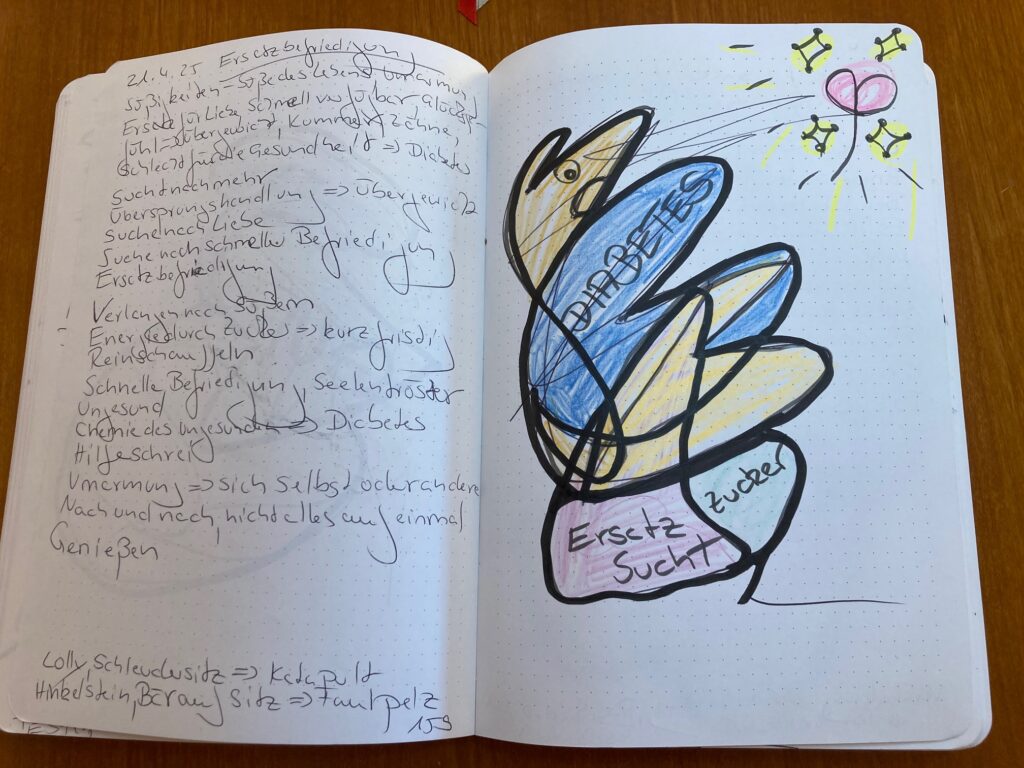 21.4.25 Ersatzbefriedigung
Süßigkeiten – Süße des Lebens Umarmung
Ersatz für Liebe, schnell verfügbar Glücksge-
fühl – Übergewicht, Kummer, Zähne,
Schlecht für die Gesundheit => Diabetes
Sucht nach mehr
Übersprungshandlung => Übergewicht
Suche nach Liebe
Suche nach schneller Befriedigung
Ersatzbefriedigung
Verlangen nach Süßem
! Energie durch Zucker => kurzfristig
Reinschaufeln
Schnelle Befriedigung Seelentröster
Ungesund
Chemie des Ungesunden => Diabetes
Hilfeschrei
Umarmung => sich selbst oder andere
Nach und nach, nicht alles auf einmal
Genießen
Lolly, Schleudersitz => Katapult
Hinkelstein, Sitz => Faulpelz
159
DIABETES
Zucker
Ersatz
Sucht